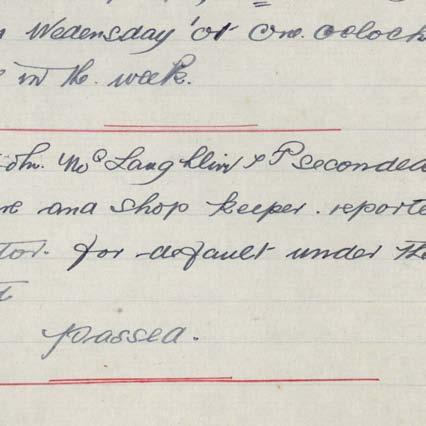 Wedensday or One. oclock
in the. week.
John. McLaughlin & P seconded
and shop keeper. reporte
tor. for default under the
t
passed.